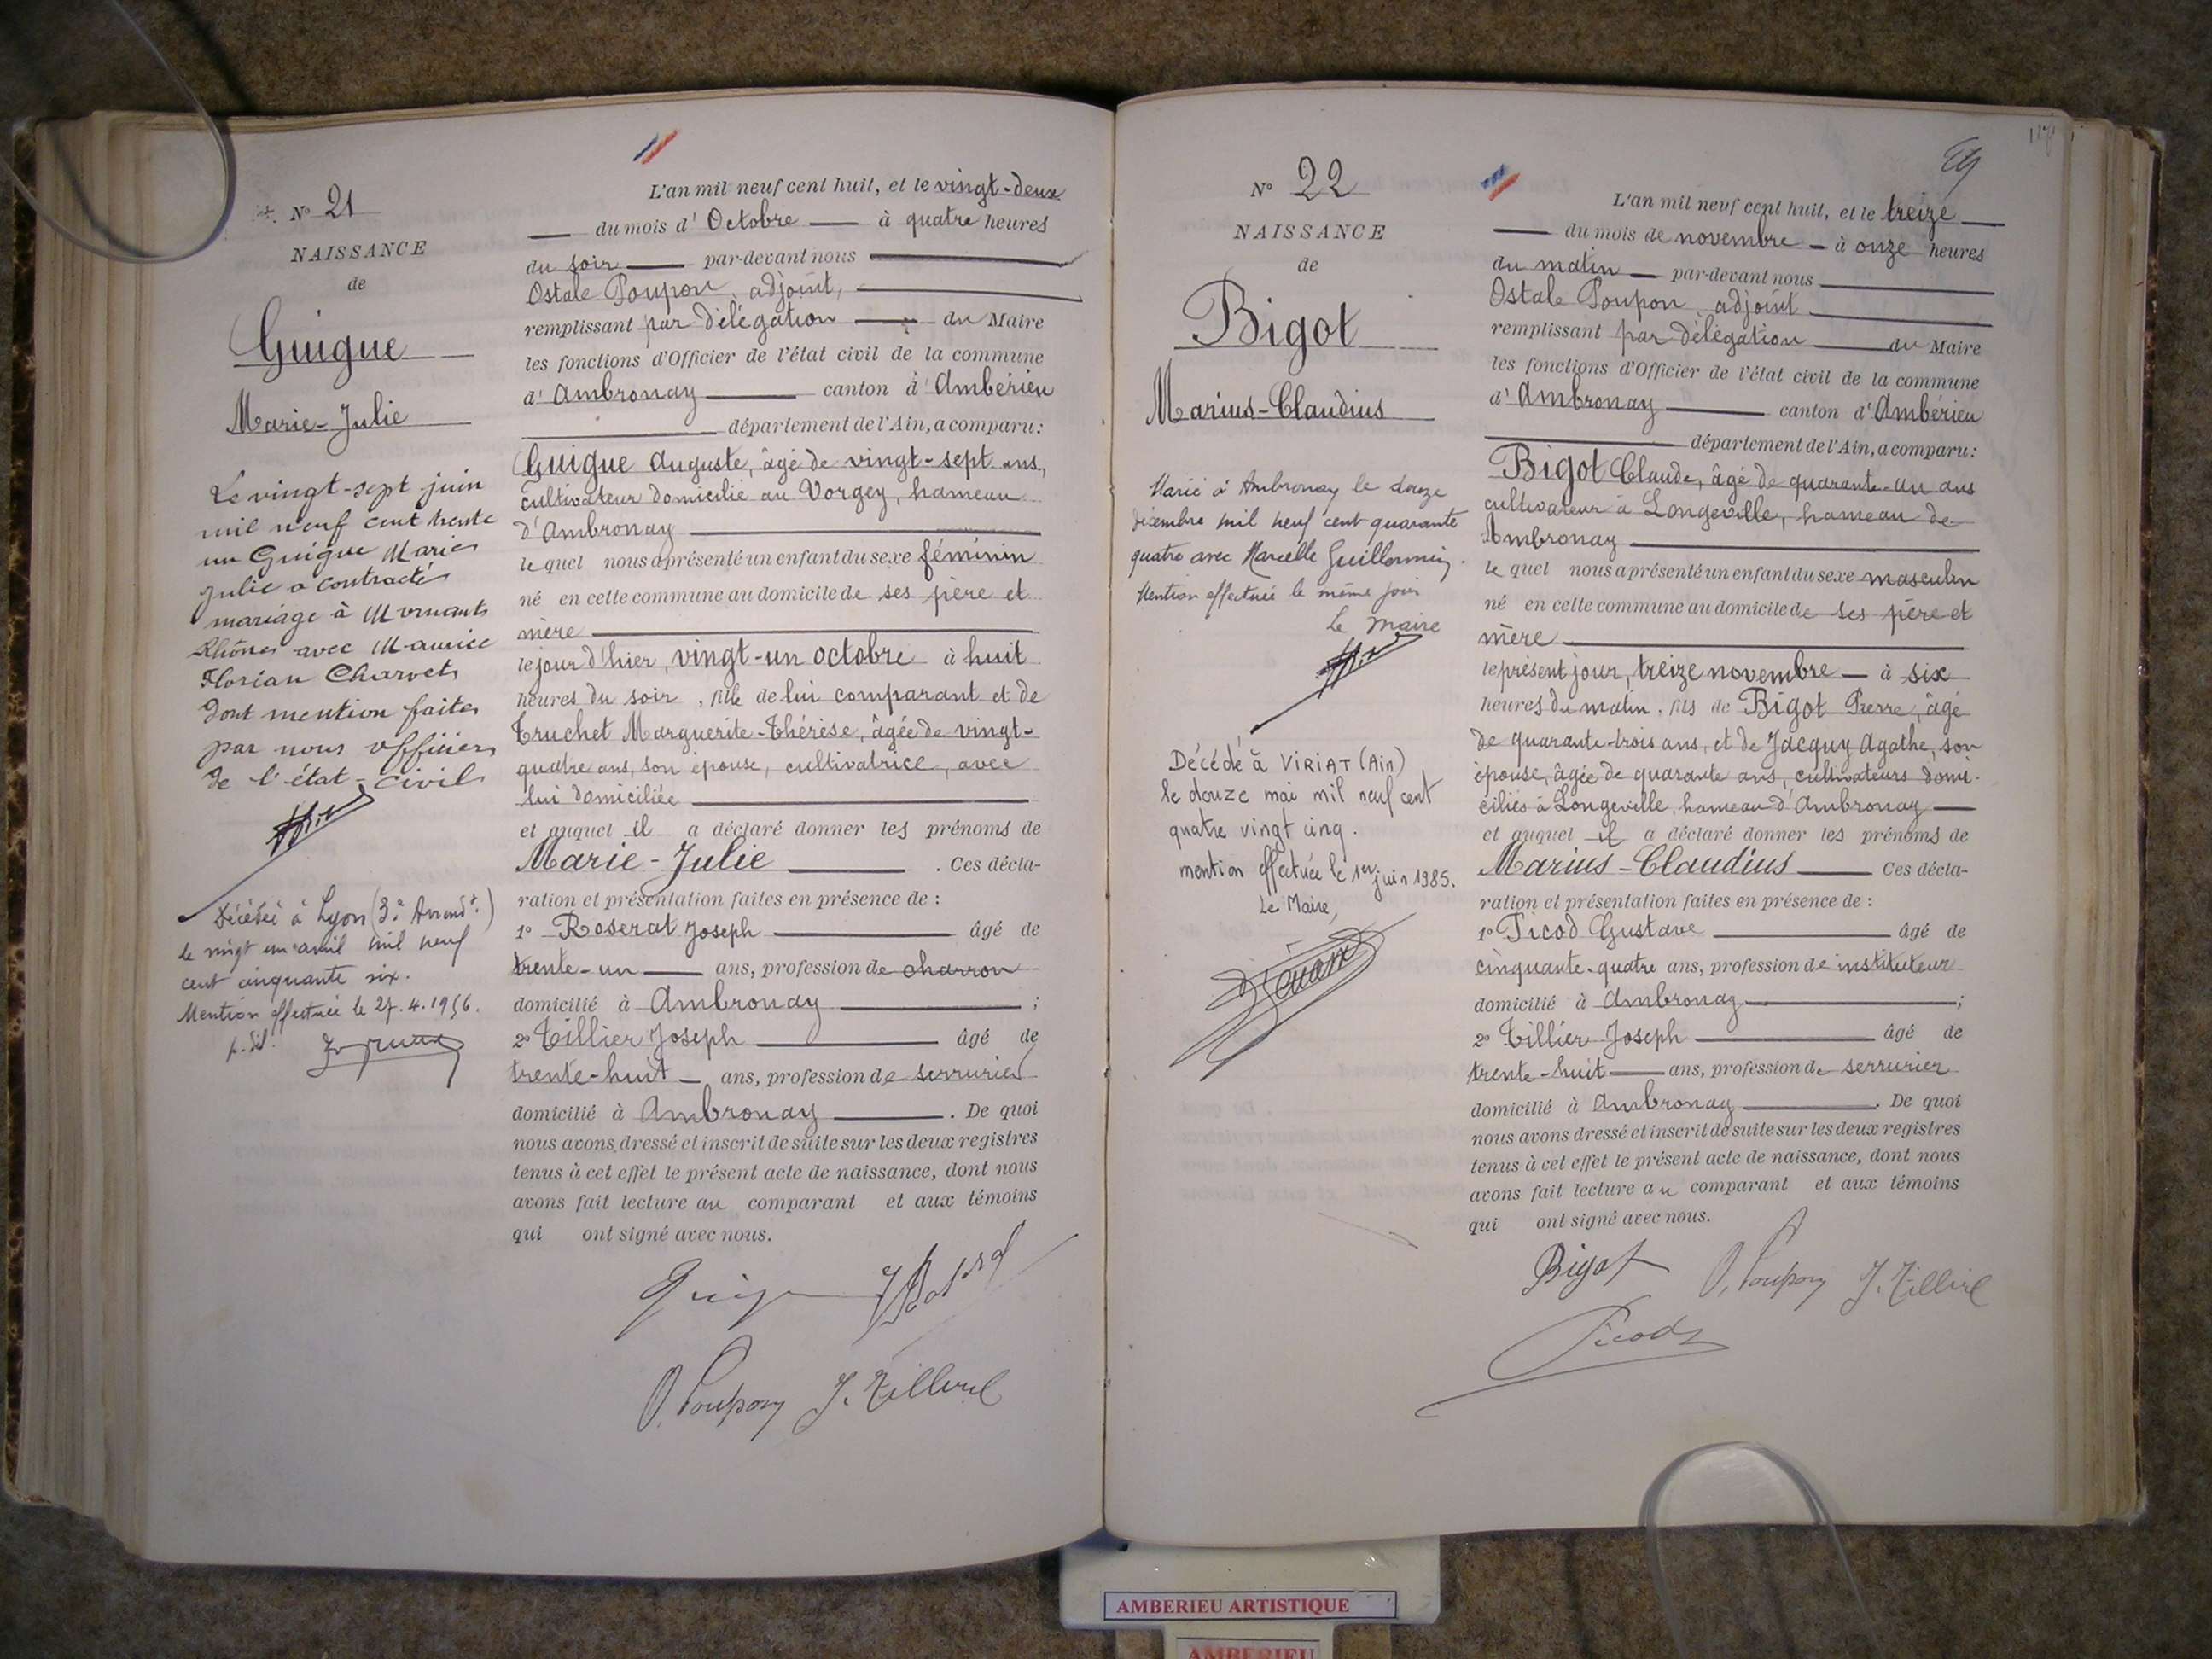 N° 21
NAISSANCE
de
Guigue
Marie-Julie
Le vingt-sept juin
mil neuf cent trente
un Guigue Marie
Julie a contracté
mariage à Mornant
Rhône avec Maurice
Florian Charvet
dont mention faite
par nous officier
de l'état-civil
Décédée à Lyon (3e Arrondt.)
le vingt un avril mil neuf
cent cinquante six.
Mention effectuée le 27.4.1956.
L'an mil neuf cent huit, et le vingt-deux
du mois d'Octobre à quatre heures
du soir par-devant nous
Ostale Poupon, adjoint,
remplissant par délégation du Maire
les fonctions d'Officier de l'état civil de la commune
d'Ambronay canton d'Ambérieu
département de l'Ain, a comparu:
Guigue Auguste, âgé de vingt-sept ans,
cultivateur domicilié au Vorgey, hameau
d'Ambronay
lequel nous a présenté un enfant du sexe féminin
né en cette commune au domicile de ses père et
mère
le jour d'hier, vingt-un octobre à huit
heures du soir, fille de lui comparant et de
Truchet Marguerite-Thérèse, âgée de vingt-
quatre ans, son épouse, cultivatrice, avec
lui domiciliée
et auquel il a déclaré donner les prénoms de
Marie-Julie. Ces décla-
ration et présentation faites en présence de :
1° Roserat Joseph âgé de
trente-un ans, profession de charron
domicilié à Ambronay ;
2° Tillier Joseph âgé de
trente-huit ans, profession de serrurier
domicilié à Ambronay. De quoi
nous avons dressé et inscrit de suite sur les deux registres
tenus à cet effet le présent acte de naissance, dont nous
avons fait lecture au comparant et aux témoins
qui ont signé avec nous.
O. Poupon J. Tillier
N° 22
NAISSANCE
de
Bigot
Marius-Claudius
Marié à Ambronay le douze
décembre mil neuf cent quarante
quatre avec Marcelle Guillermin.
Mention effectuée le même jour
Le Maire
Décédé à VIRIAT (Ain)
le douze mai mil neuf cent
quatre vingt cinq.
mention effectuée le 1er juin 1985.
Le Maire,
L'an mil neuf cent huit, et le treize
du mois de novembre à onze heures
du matin par-devant nous
Ostale Poupon, adjoint
remplissant par délégation du Maire
les fonctions d'Officier de l'état civil de la commune
d'Ambronay canton d'Ambérieu
département de l'Ain, a comparu:
Bigot Claude, âgé de quarante-un ans
cultivateur à Longeville, hameau de
Ambronay
lequel nous a présenté un enfant du sexe masculin
né en cette commune au domicile de ses père et
mère
le présent jour, treize novembre à six
heures du matin, fils de Bigot Pierre, âgé
de quarante-trois ans, et de Jacquy Agathe, son
épouse, âgée de quarante ans, cultivateurs domi-
ciliés à Longeville, hameau d'Ambronay
et auquel il a déclaré donner les prénoms de
Marius-Claudius Ces décla-
ration et présentation faites en présence de :
1° Picod Gustave âgé de
cinquante-quatre ans, profession de instituteur
domicilié à Ambronay ;
2° Tillier Joseph âgé de
trente-huit ans, profession de serrurier
domicilié à Ambronay. De quoi
nous avons dressé et inscrit de suite sur les deux registres
tenus à cet effet le présent acte de naissance, dont nous
avons fait lecture au comparant et aux témoins
qui ont signé avec nous.
Bigot O. Poupon J. Tillier
Picod
AMBERIEU ARTISTIQUE
AMBERIEU